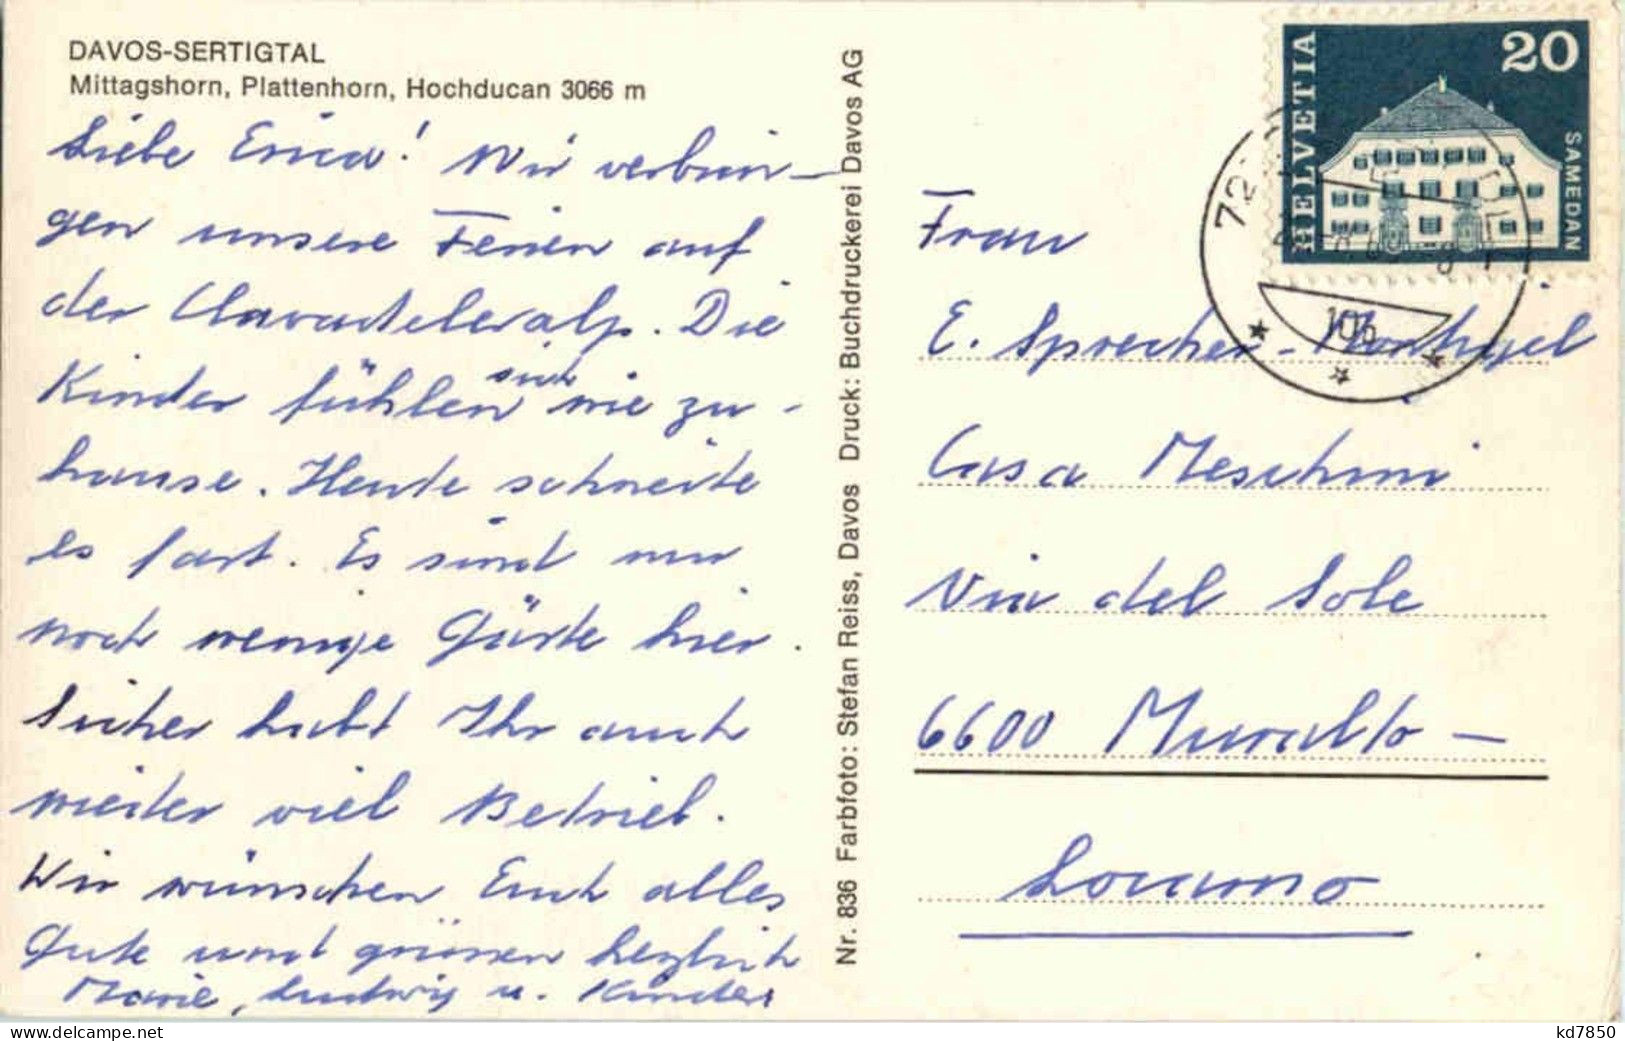 DAVOS-SERTIGTAL
Mittagshorn, Plattenhorn, Hochducan 3066 m
Liebe Erica! Wir verbrin-
gen unsere Ferien auf
der Clavadeleralp. Die
Kinder fühlen sich wie zu-
hause. Heute schneite
es fast. Es sind nur
noch wenige Gäste hier.
Sicher habt Ihr auch
wieder viel Betrieb.
Wir wünschen Euch alles
Gute und grüssen herzlich
Marie, Ludwig u. Kinder
Nr. 836 Farbfoto: Stefan Reiss, Davos Druck: Buchdruckerei Davos AG
HELVETIA
20
SAMEDAN
72
106
Frau
E. Sprecher-
Casa Meschini
Via del Sole
6600 Muralto -
Locarno
kd7850